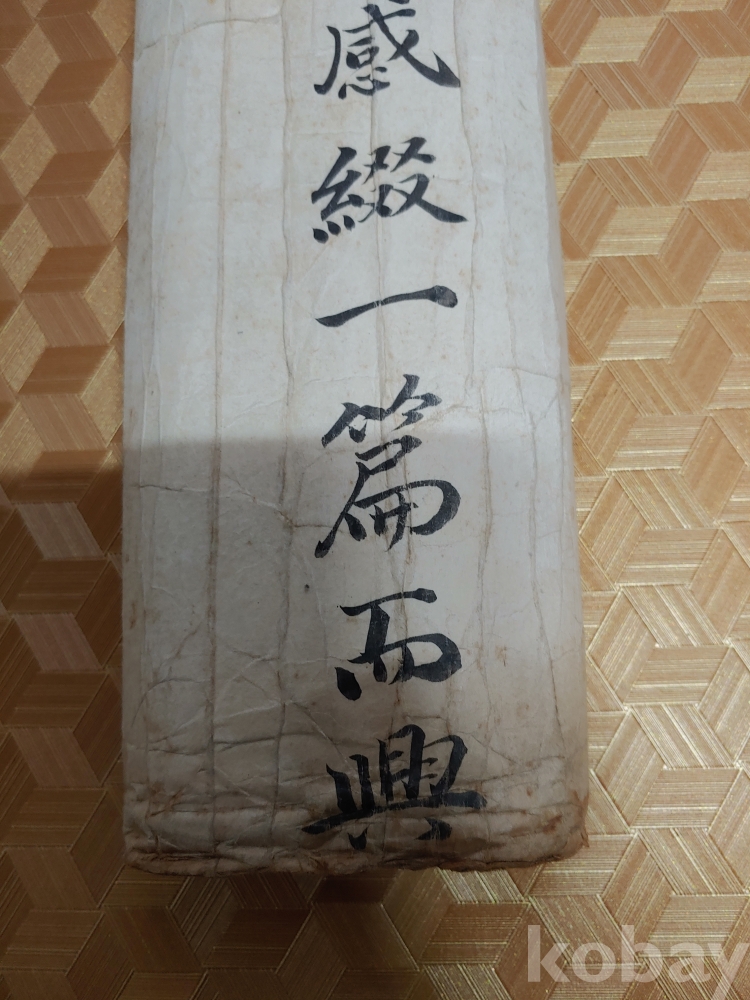 感綴一篇而興
kobay